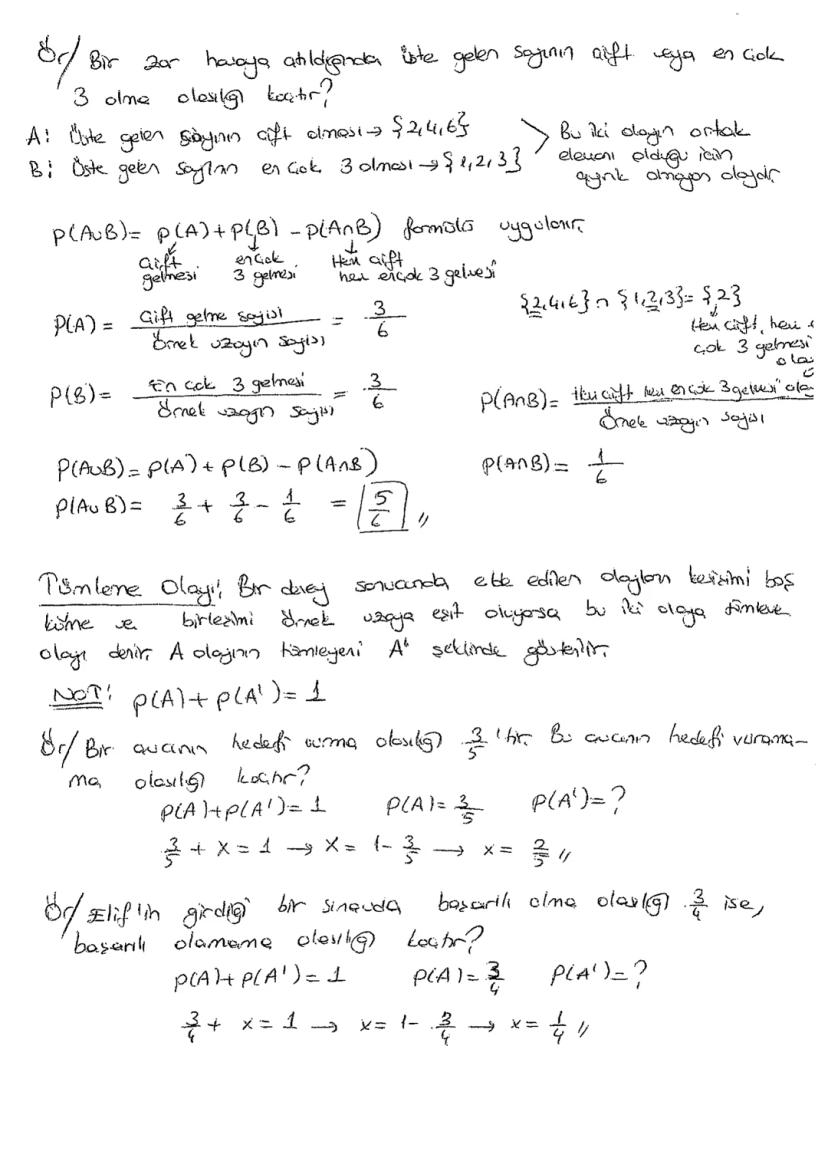 Ör/ Bir zar havaya atıldığında üste gelen sayının çift veya en çok
3 olma olasılığı kaçtır?
A: Üste gelen sayının çift olması → {2,4,6}
B: Üste gelen sayının en çok 3 olması → {1,2,3}
Bu iki olayın ortak
elemanı olduğu için
ayrık olmayan olaydır.
P(A∪B) = P(A) + P(B) - P(A∩B) formülü uygulanır.
Çift gelmesi
en çok 3 gelmesi
Hem çift hem en çok 3 gelmesi
{2,4,6} ∩ {1,2,3} = {2}
Hem çift, hem
çok 3 gelmesi
P(A) = Çift gelme sayısı / Örnek uzayın sayısı = 3/6
P(B) = En çok 3 gelmesi / Örnek uzayın sayısı = 3/6
P(A∩B) = Hem çift hem en çok 3 gelmesi ola / Örnek uzayın sayısı
P(A∪B) = P(A) + P(B) - P(A∩B)
P(A∩B) = 1/6
P(A∪B) = 3/6 + 3/6 - 1/6 = 5/6 //
Tümleme Olayı: Bir deney sonucunda elde edilen olayların kesişimi boş
küme ve birleşimi örnek uzaya eşit oluyorsa bu iki olaya tümleme
olayı denir. A olayının tümleyeni A' şeklinde gösterilir.
NOT: P(A) + P(A') = 1
Ör/ Bir avcının hedefi vurma olasılığı 3/5 'tir. Bu avcının hedefi vurama-
ma olasılığı kaçtır?
P(A) + P(A') = 1 P(A) = 3/5 P(A') = ?
3/5 + x = 1 → x = 1 - 3/5 → x = 2/5 //
Ör/ Elif'in girdiği bir sınavda başarılı olma olasılığı 3/4 ise,
başarılı olamama olasılığı kaçtır?
P(A) + P(A') = 1 P(A) = 3/4 P(A') = ?
3/4 + x = 1 → x = 1 - 3/4 → x = 1/4 //